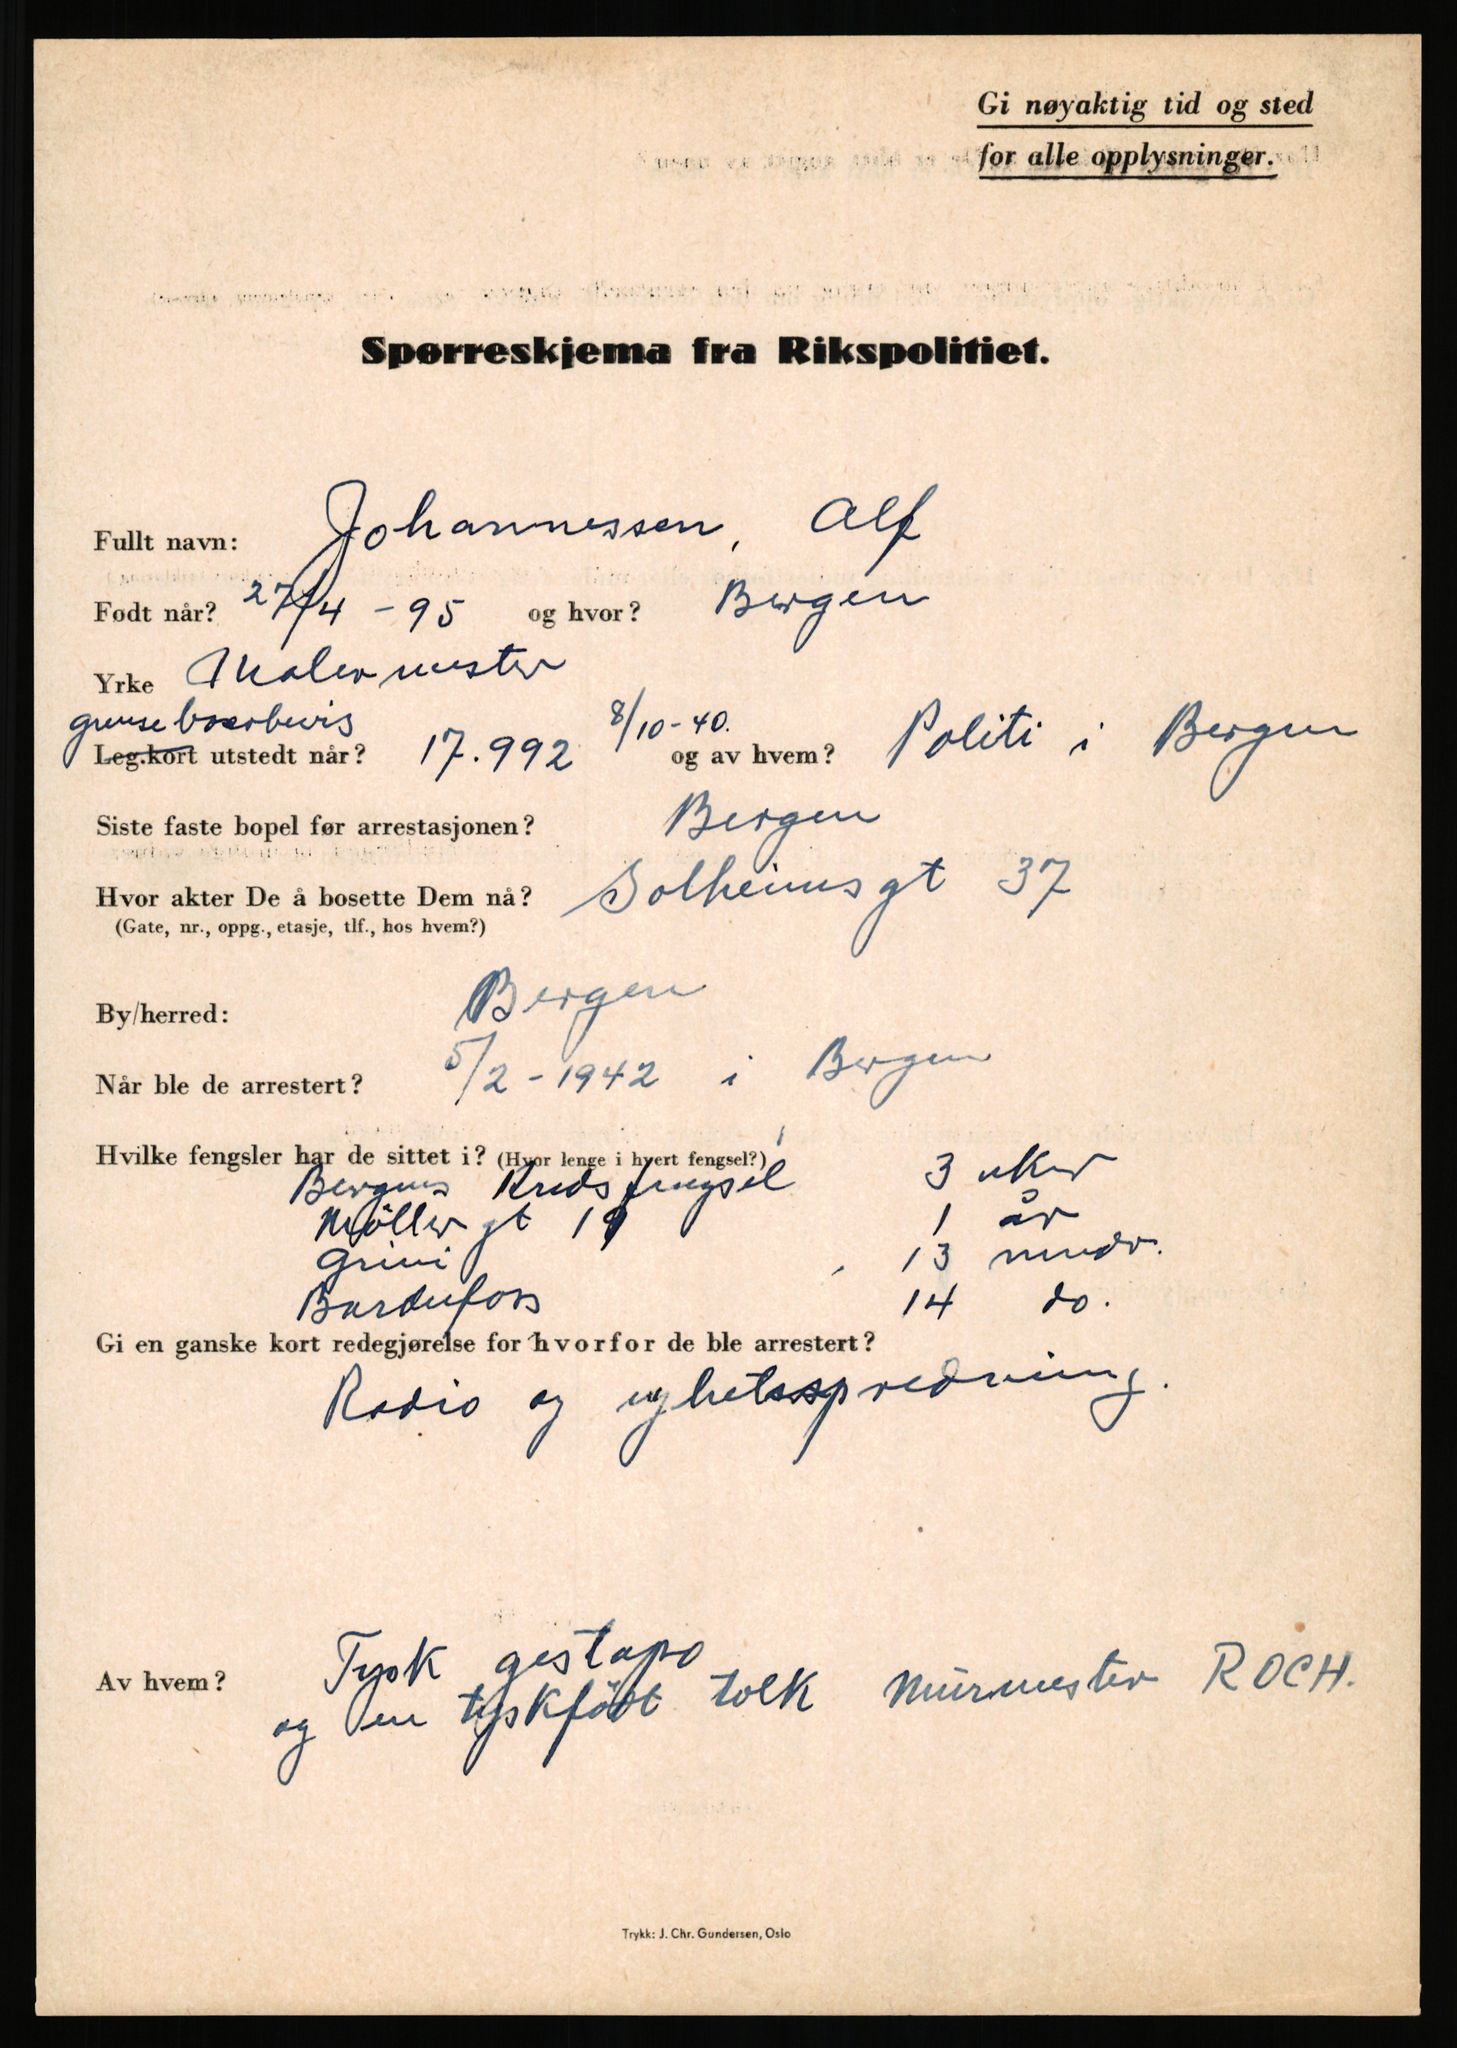 Gi nøyaktig tid og sted
for alle opplysninger.
Spørreskjema fra Rikspolitiet.
Fullt navn: Johannessen, Alf
Født når? 27/4 - 95 og hvor? Bergen
Yrke Malermester
grenseboerbevis
Leg.kort utstedt når? 17.992 8/10-40. og av hvem? Politi i Bergen
Siste faste bopel før arrestasjonen? Bergen
Hvor akter De å bosette Dem nå? Solheimsgt 37
(Gate, nr., oppg., etasje, tlf., hos hvem?)
By/herred: Bergen
Når ble de arrestert? 5/2 - 1942 i Bergen
Hvilke fengsler har de sittet i? (Hvor lenge i hvert fengsel?)
Bergens Kredsfengsel 3 uker
Møller gt 19 1 år
Grini 13 mndr.
Bardufoss 14 do.
Gi en ganske kort redegjørelse for hvorfor de ble arrestert?
Radio og nyhetsspredning.
Av hvem? Tysk gestapo
og en tyskfödt tolk Murmester ROCH.
Trykk: J. Chr. Gundersen, Oslo